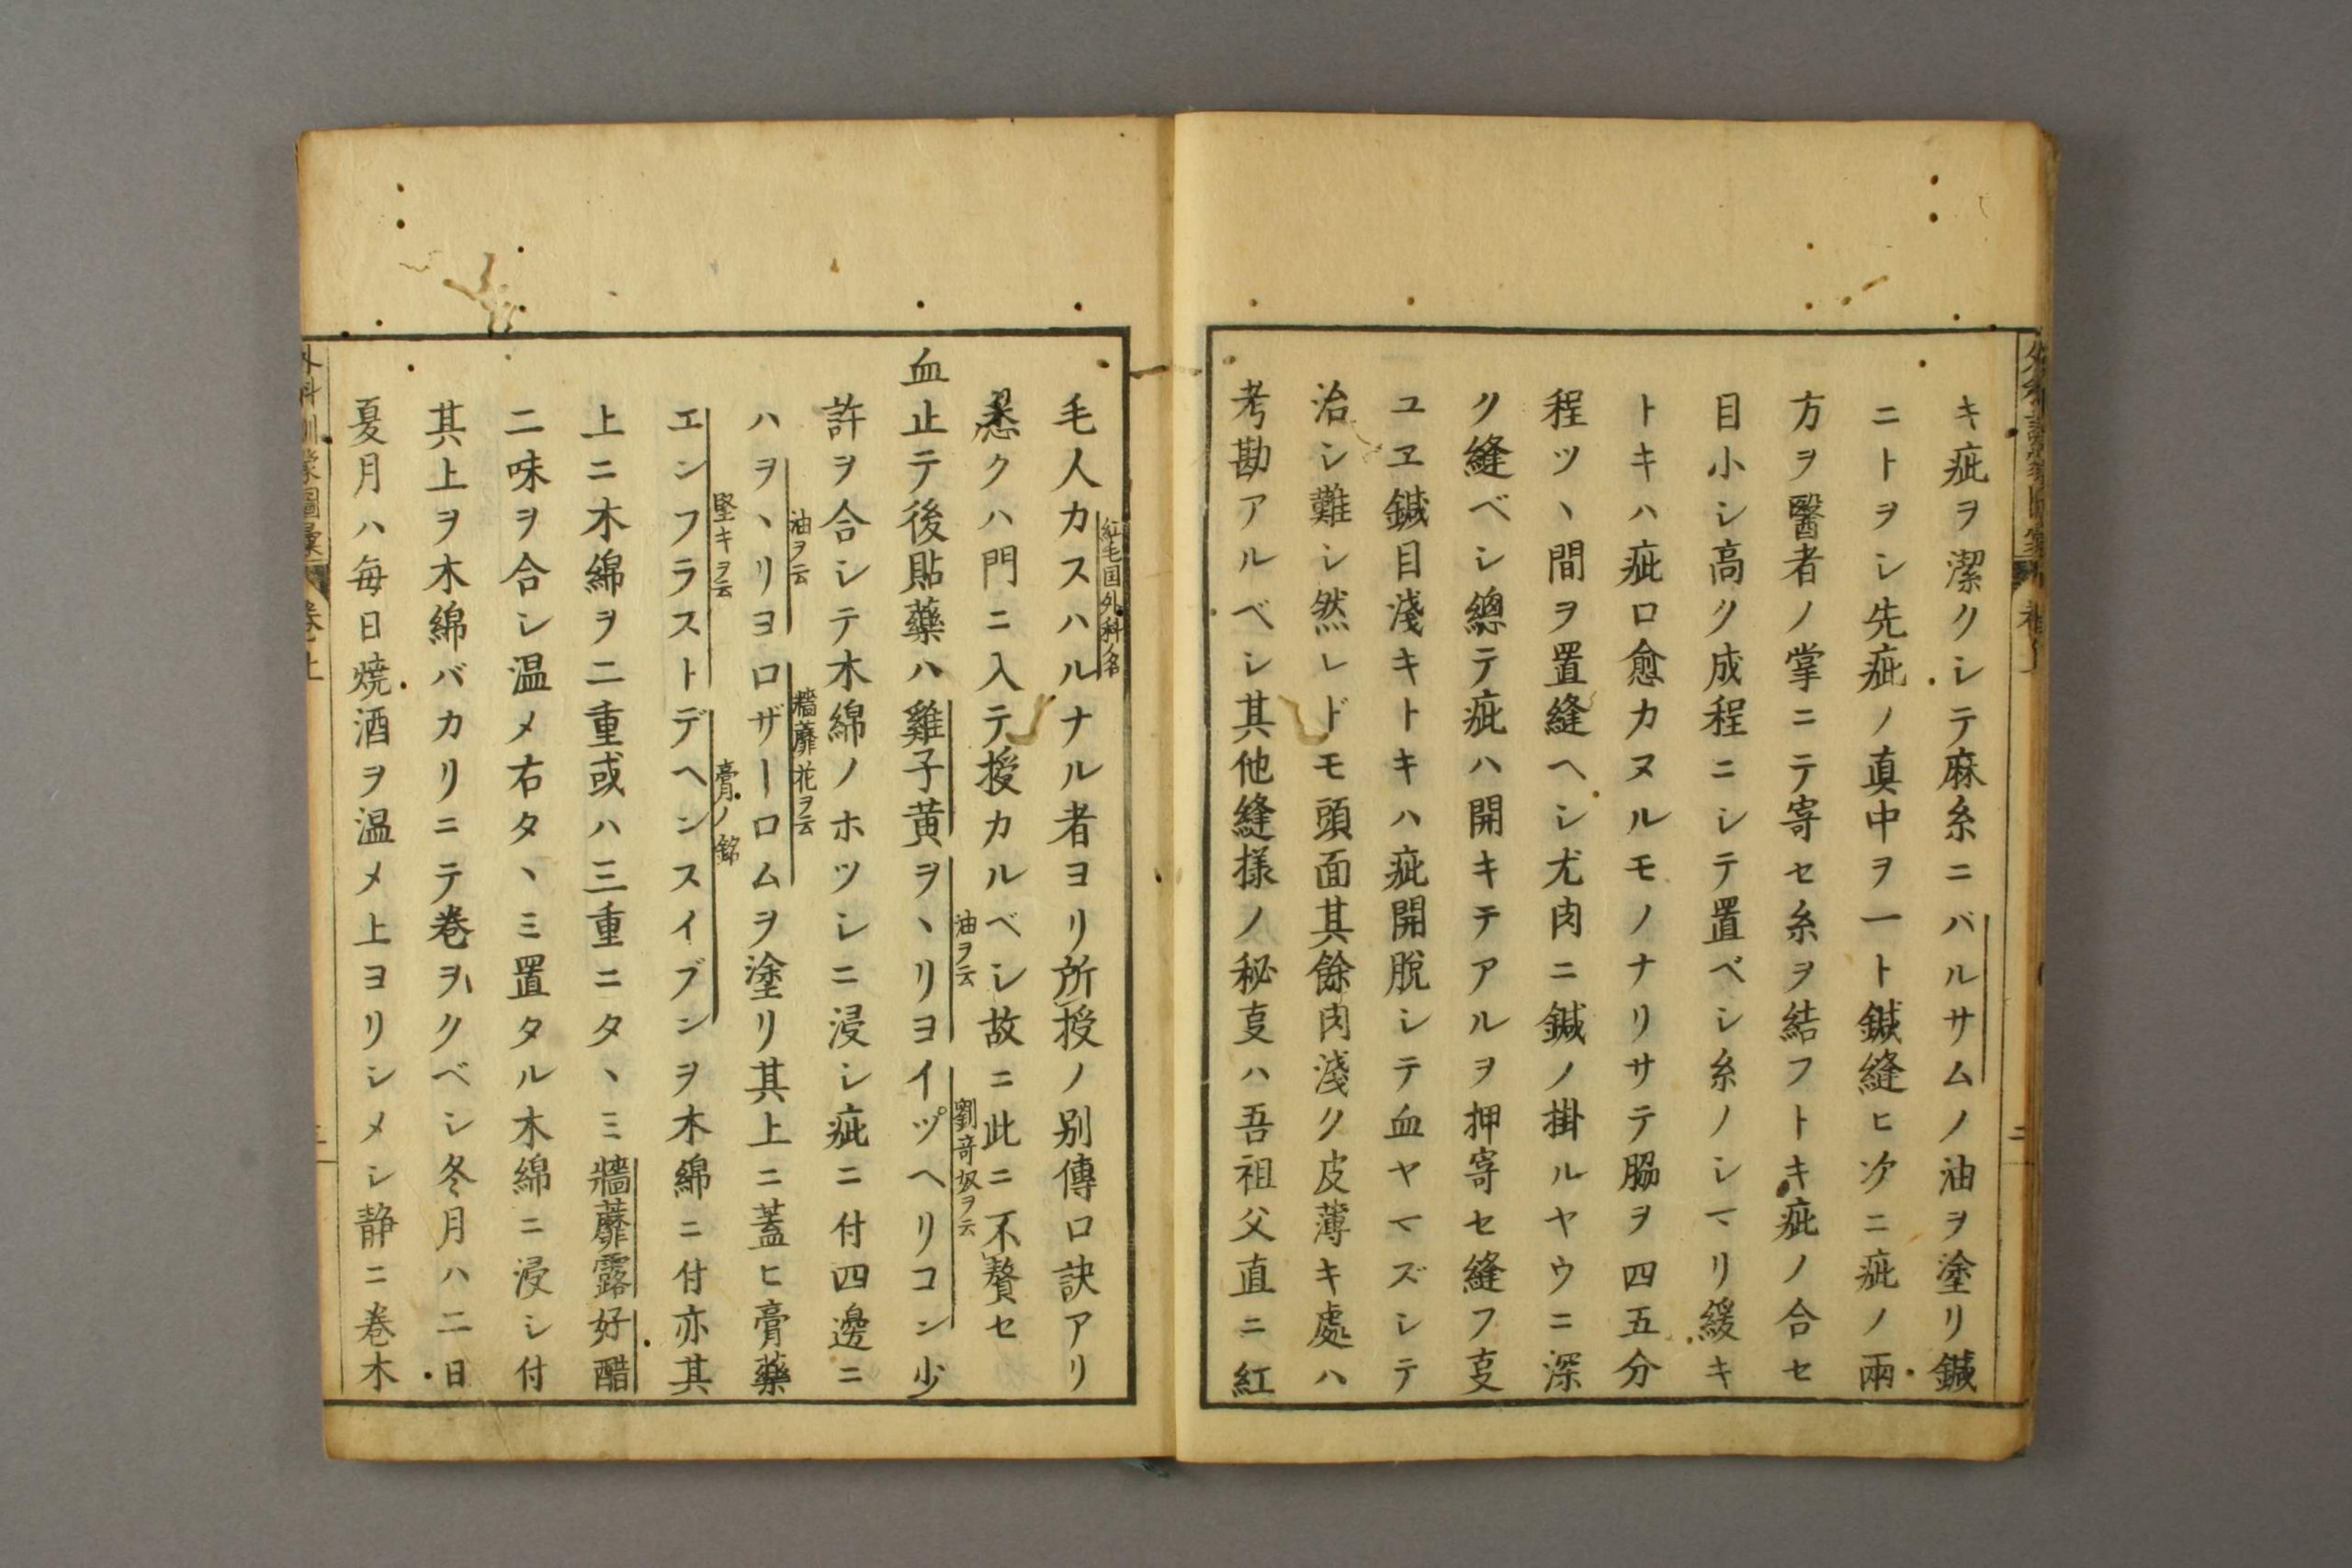 キ疵ヲ潔クシテ麻糸ニバルサムノ油ヲ塗リ鍼
ニトヲシ先疵ノ真中ヲ一ト鍼縫ヒ次ニ疵ノ兩
方ヲ醫者ノ掌ニテ寄セ糸ヲ結フトキ疵ノ合セ
目小シ高ク成程ニシテ置ベシ糸ノシマリ緩キ
トキハ疵口愈カヌルモノナリサテ脇ヲ四五分
程ツヽ間ヲ置縫ヘシ尤肉ニ鍼ノ掛ルヤウニ深
ク縫ベシ總テ疵ハ開キテアルヲ押寄セ縫フ㕝
ユヱ鍼目淺キトキハ疵開脫シテ血ヤマズシテ
治シ難シ然レドモ頭面其餘肉淺ク皮薄キ處ハ
考勘アルベシ其他縫様ノ秘㕝ハ吾祖父直ニ紅
紅毛国外科ノ名
毛人カスハルナル者ヨリ所授ノ別傳口訣アリ
悉クハ門ニ入テ授カルベシ故ニ此ニ不贅セ
油ヲ云
劉竒奴ヲ云
血止テ後貼藥ハ雞子黄ヲヽリヨイヅヘリコン少
許ヲ合シテ木綿ノホツシニ浸シ疵ニ付四邊ニ
油ヲ云
牆蘼花ヲ云
ハヲヽリヨロザーロムヲ塗リ其上ニ蓋ヒ膏藥
堅キヲ云
膏ノ銘
エンフラストデヘンスイブンヲ木綿ニ付亦其
上ニ木綿ヲ二重或ハ三重ニタヽミ牆蘼露好醋
二味ヲ合シ温メ右タヽミ置タル木綿ニ浸シ付
其上ヲ木綿バカリニテ巻ヲクベシ冬月ハ二日
夏月ハ毎日焼酒ヲ温メ上ヨリシメシ静ニ巻木
外科訓蒙圖彙 卷上